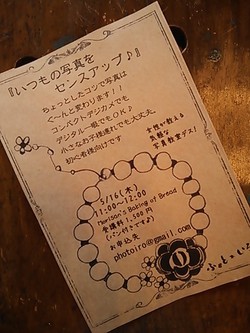 『いつもの写真を
センスアップ♪』
ちょっとしたコツで写真は
ぐ〜んと変わります！！
コンパクトデジカメでも
デジタル一眼でもOK♪
小さなお子様連れでも大丈夫。
初心者様向けです
女性が教える
気軽な
写真教室デス！
5/16(木)
11:00〜12:00
Morison's Baking of Bread
受講料 1,500円
(パン付きです♪)
お申込先
photoiro@gmail.com